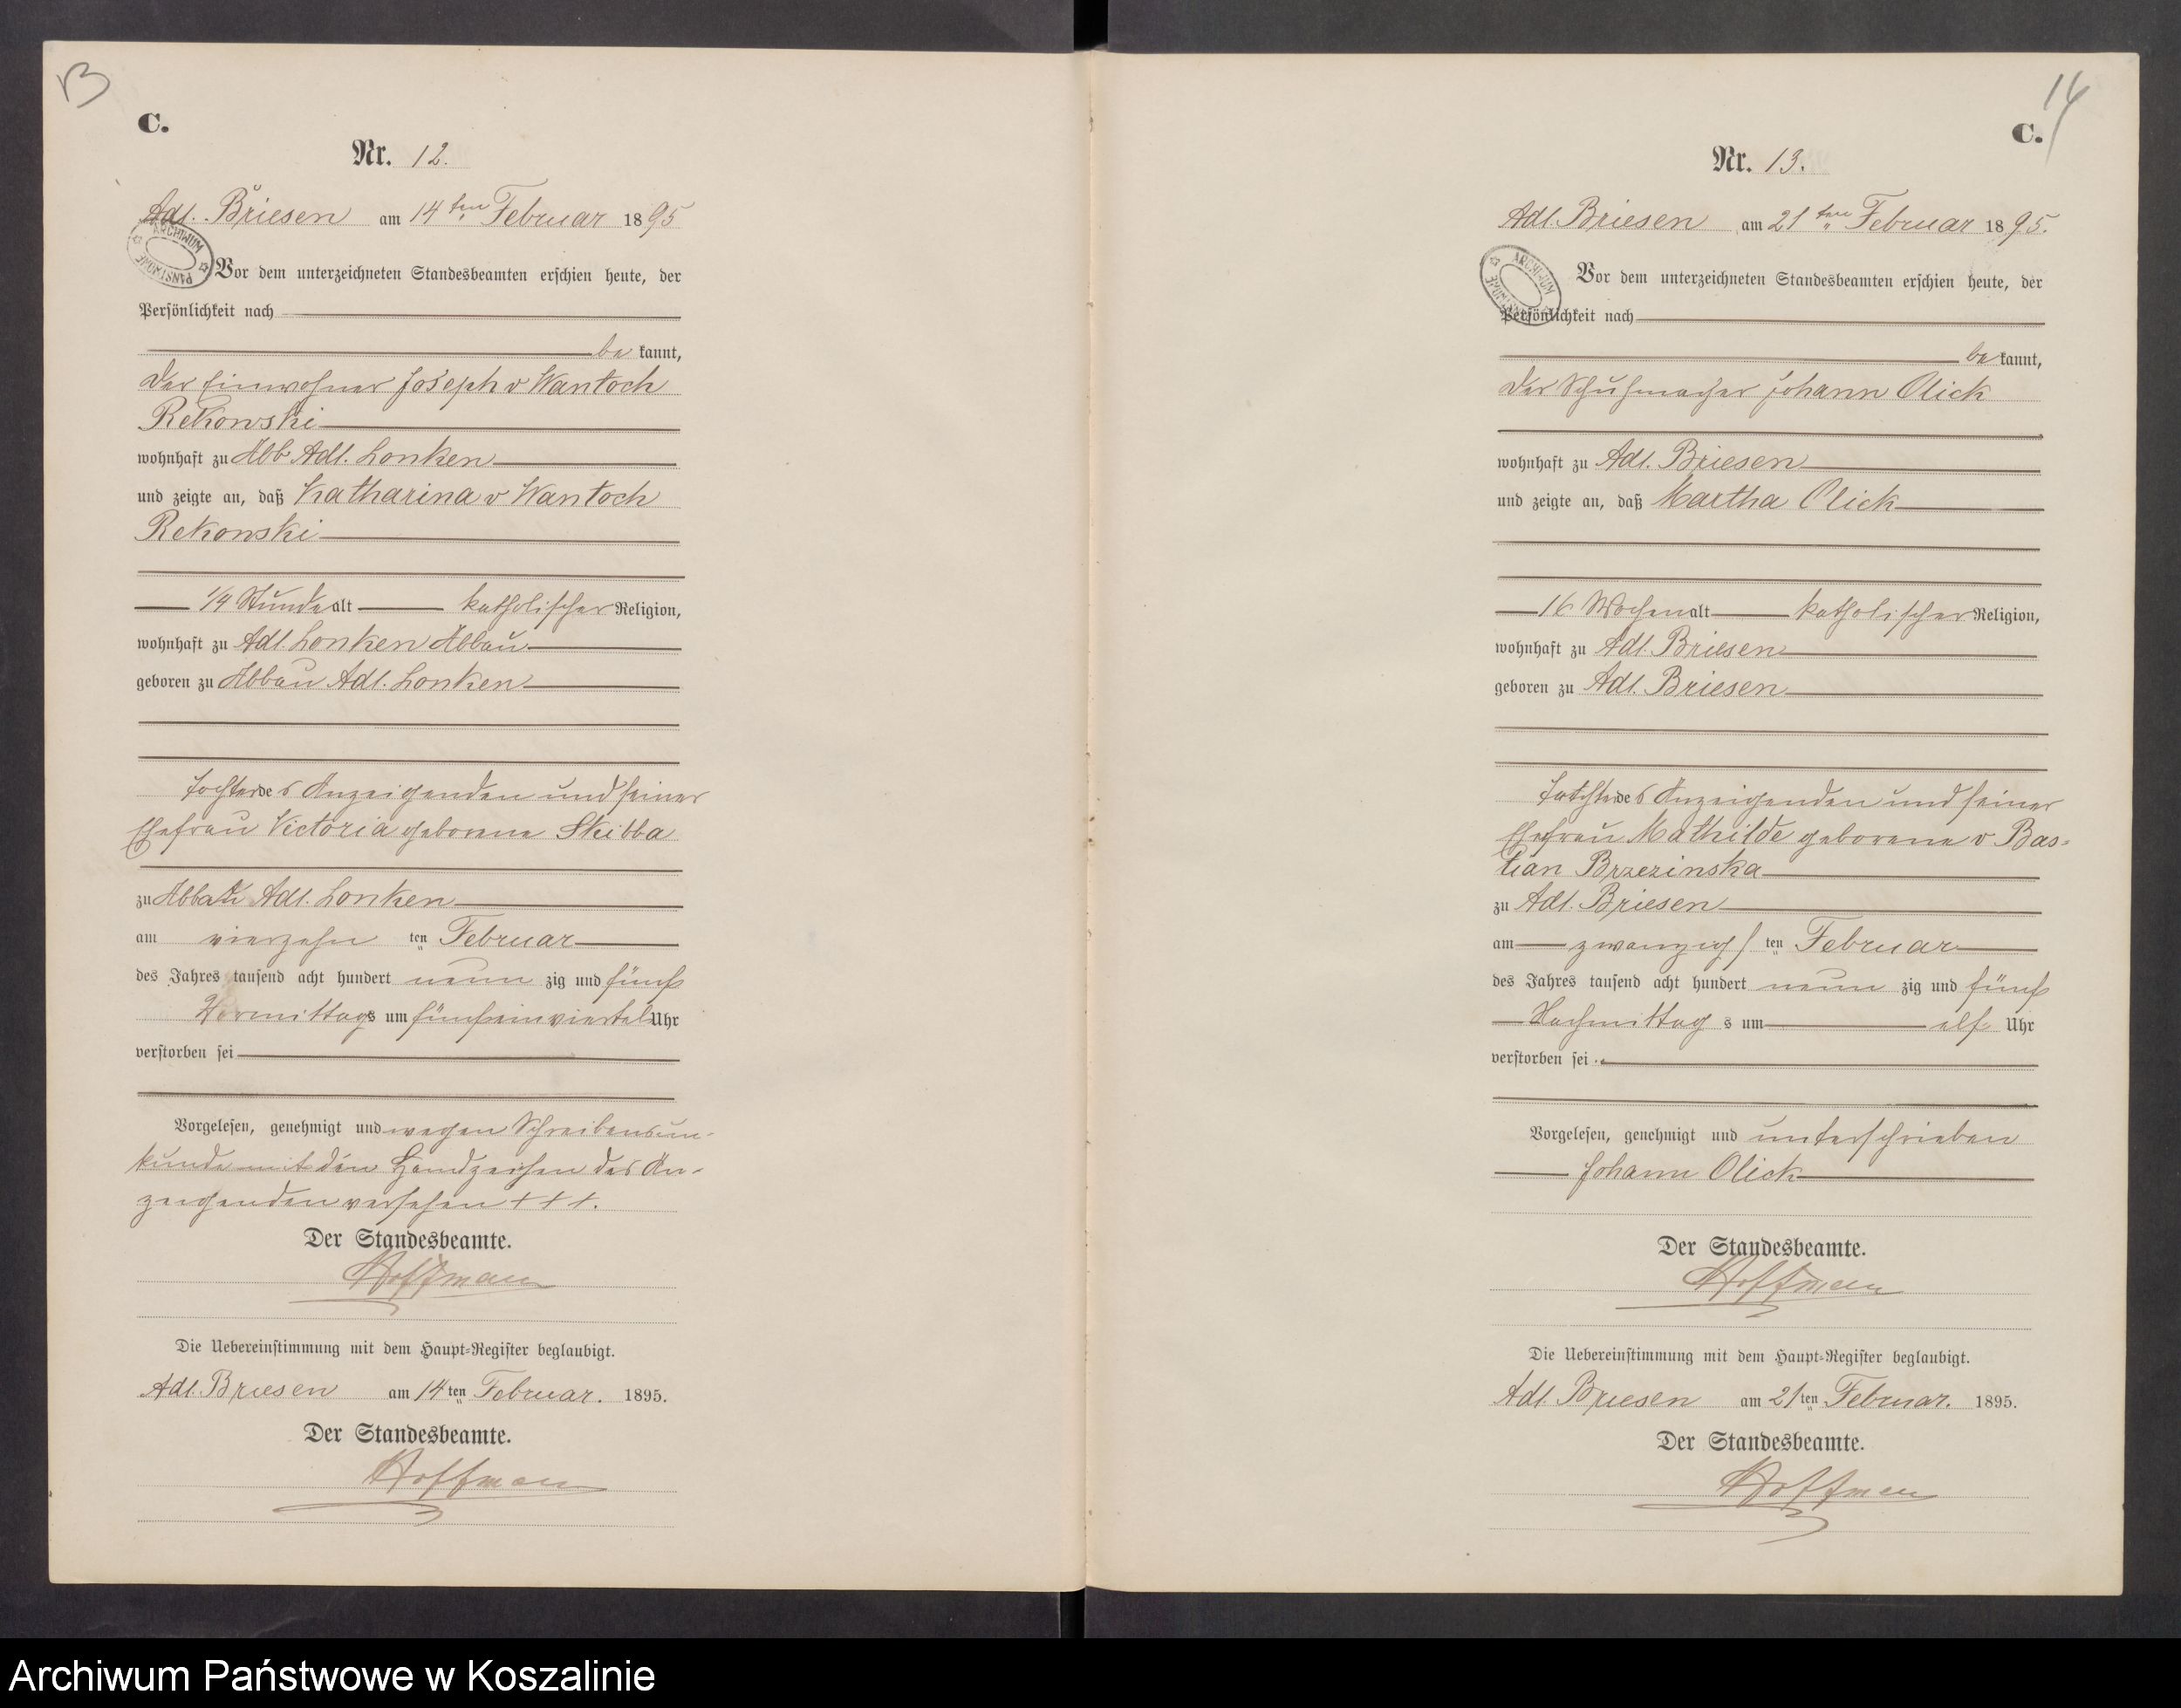 13
C.
Nr. 12.
Adl. Briesen am 14ten Februar 1895
ARCHIWUM PAŃSTWOWE
Vor dem unterzeichneten Standesbeamten erschien heute, der
Persönlichkeit nach
be kannt,
der Einwohner Joseph v Wantoch
Rekowski
wohnhaft zu Abb Adl. Lonken
und zeigte an, daß Katharina v Wantoch
Rekowski
1/4 Stunde alt katholischer Religion,
wohnhaft zu Adl. Lonken Abbau
geboren zu Abbau Adl. Lonken
Tochter des Anzeigenden und seiner
Ehefrau Victoria geborene Skibba
zu Abbau Adl. Lonken
am vierzehn ten Februar
des Jahres tausend acht hundert neun zig und fünf
Vormittags um fünfeinviertel Uhr
verstorben sei
Vorgelesen, genehmigt und wegen Schreibensun-
kunde mit den Handzeichen des An-
zeigenden versehen + + +.
Der Standesbeamte.
Hoffmann
Die Uebereinstimmung mit dem Haupt-Register beglaubigt.
Adl. Briesen am 14ten Februar. 1895.
Der Standesbeamte.
Hoffmann
14
C.
Nr. 13.
Adl. Briesen am 21ten Februar 1895.
ARCHIWUM PAŃSTWOWE
Vor dem unterzeichneten Standesbeamten erschien heute, der
Persönlichkeit nach
be kannt,
der Schuhmacher Johann Olick
wohnhaft zu Adl. Briesen
und zeigte an, daß Martha Olick
16 Wochen alt katholischer Religion,
wohnhaft zu Adl. Briesen
geboren zu Adl. Briesen
Tochter des Anzeigenden und seiner
Ehefrau Mathilde geborene v. Bas-
tian Brzezinska
zu Adl. Briesen
am zwanzigsten Februar
des Jahres tausend acht hundert neun zig und fünf
Nachmittag s um elf Uhr
verstorben sei
Vorgelesen, genehmigt und unterschrieben
Johann Olick
Der Standesbeamte.
Hoffmann
Die Uebereinstimmung mit dem Haupt-Register beglaubigt.
Adl. Briesen am 21ten Februar. 1895.
Der Standesbeamte.
Hoffmann
Archiwum Państwowe w Koszalinie